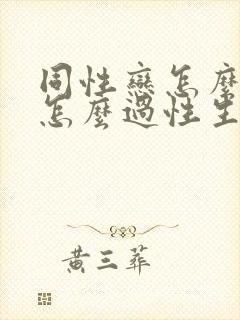 同性戀怎麼
怎麼過性生
黃三葬